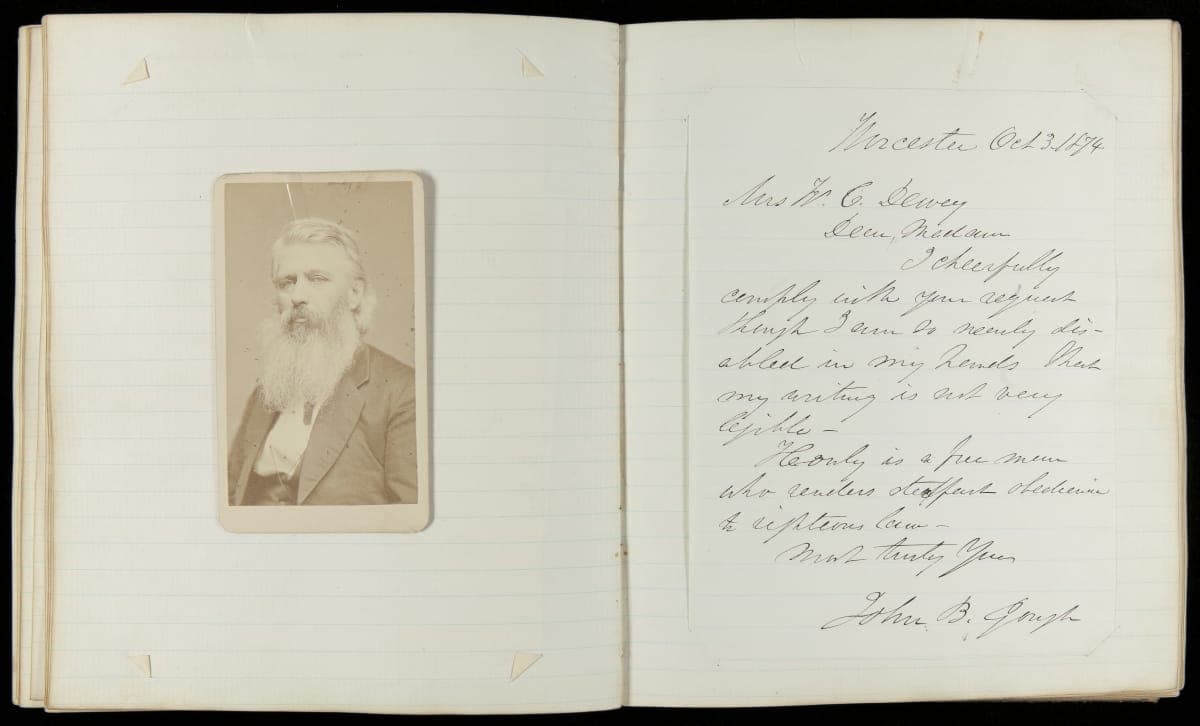 Worcester Oct 3. 1874
Mrs W. C. Dewey
Dear Madam
I cheerfully
comply with your request
though I am so nearly dis-
abled in my hands that
my writing is not very
legible –
He only is a free man
who renders steadfast obedience
to righteous law –
Most truly Yours
John B. Gough